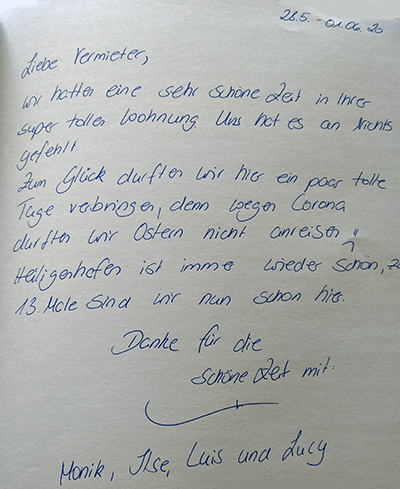 28.5. - 01.06.20
Liebe Vermieter,
wir hatten eine sehr schöne Zeit in Ihrer
super tollen Wohnung. Uns hat es an Nichts
gefehlt.
Zum Glück durften wir hier ein paar tolle
Tage verbringen, denn wegen Corona
durften wir Ostern nicht anreisen.
Heiligenhafen ist immer wieder schön, z
13. Male sind wir nun schon hier.
Danke für die
schöne Zeit mit:
Monik, Ilse, Luis und Lucy